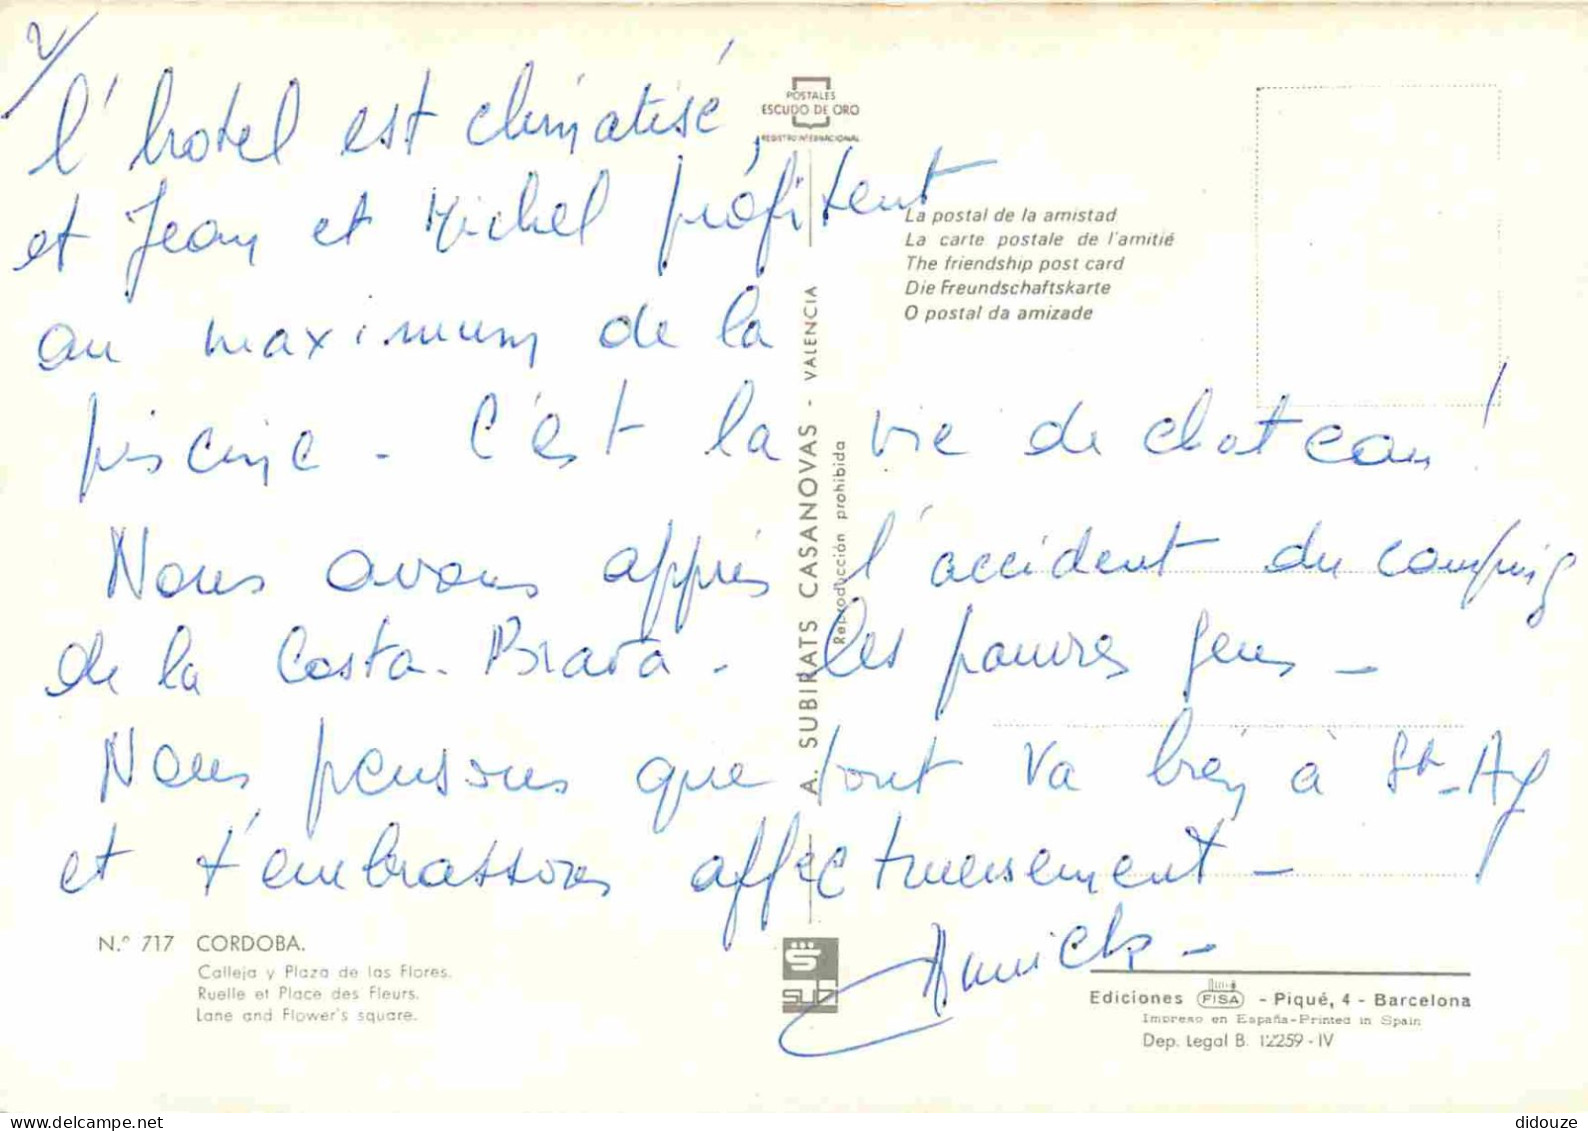 2/
l'hotel est climatisé,
et Jean et Michel profitent
au maximum de la
piscine - C'est la vie de chateau!
Nous avons appris l'accident du camping
de la Costa-Brava - les pauvres gens -
Nous pensons que tout va bien à St-Ay
et t'embrassons affectueusement -
Annick -
POSTALES
ESCUDO DE ORO
REGISTRO INTERNACIONAL
La postal de la amistad
La carte postale de l'amitié
The friendship post card
Die Freundschaftskarte
O postal da amizade
A. SUBIRATS CASANOVAS - VALENCIA
Reproducción prohibida
N.º 717 CORDOBA.
Calleja y Plaza de las Flores.
Ruelle et Place des Fleurs.
Lane and Flower's square.
SUBI
Ediciones FISA - Piqué, 4 - Barcelona
Impreso en España-Printed in Spain
Dep. Legal B. 12259 - IV
delcampe.net
didouze